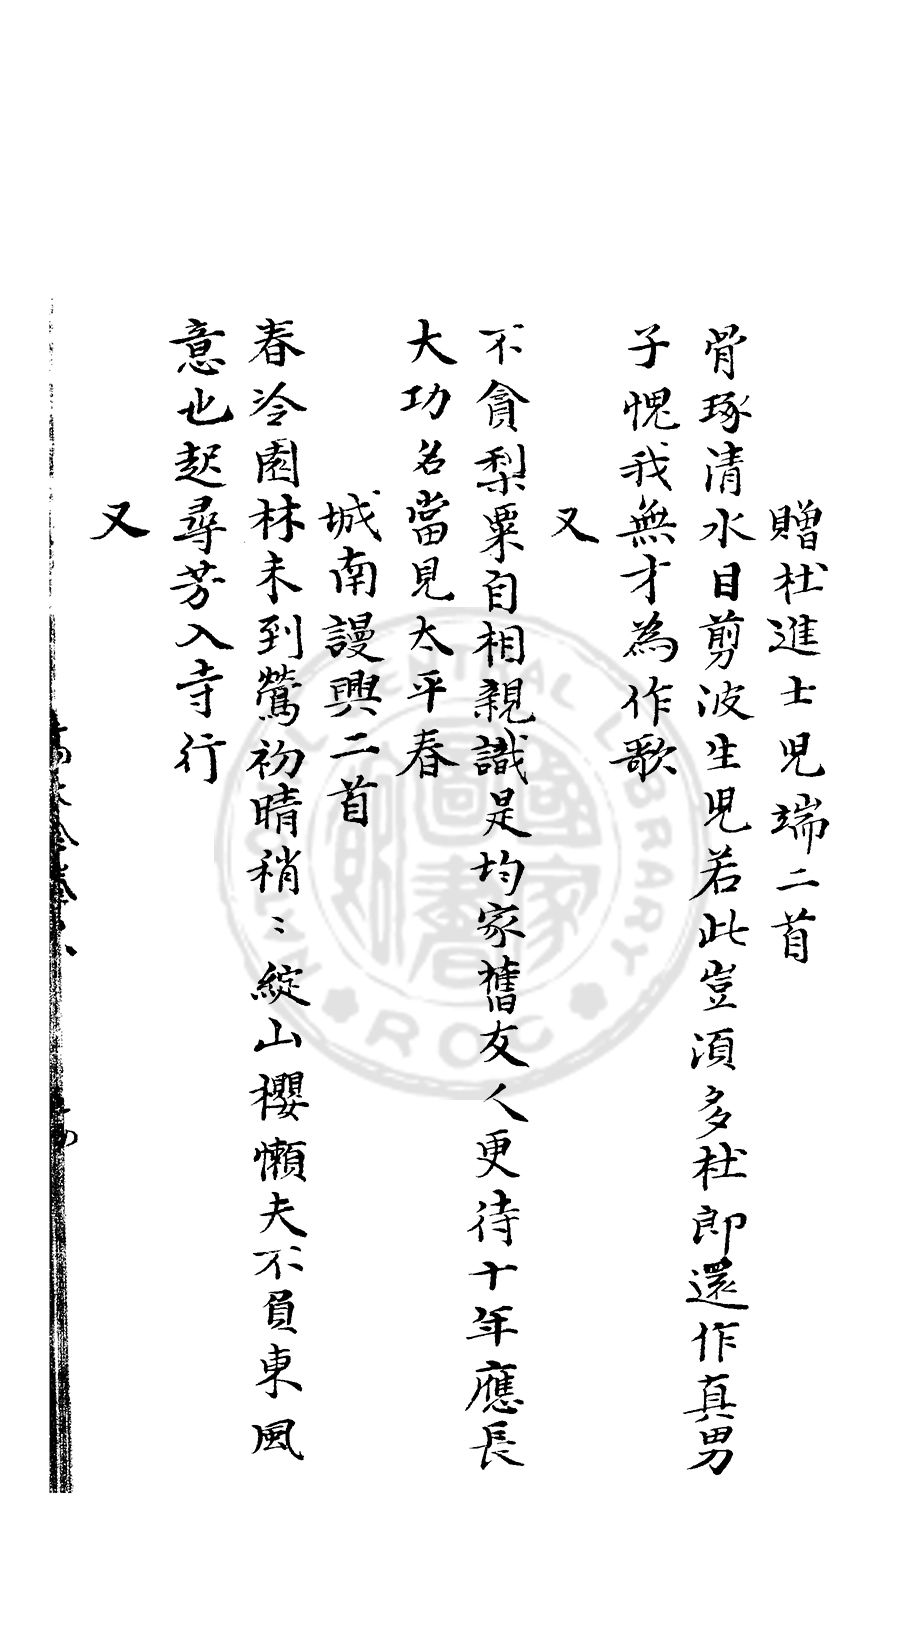 贈杜進士児端二首
骨琢清水目剪波生児若此豈須多杜郎還作真男
子愧我無才為作歌
又
不貪梨粟自相親識是均家舊友人更待十年應長
大功名當見太平春
城南謾興二首
春冷園林未到鶯初晴稍〻綻山櫻懶夫不負東風
意也起尋芳入寺行
又